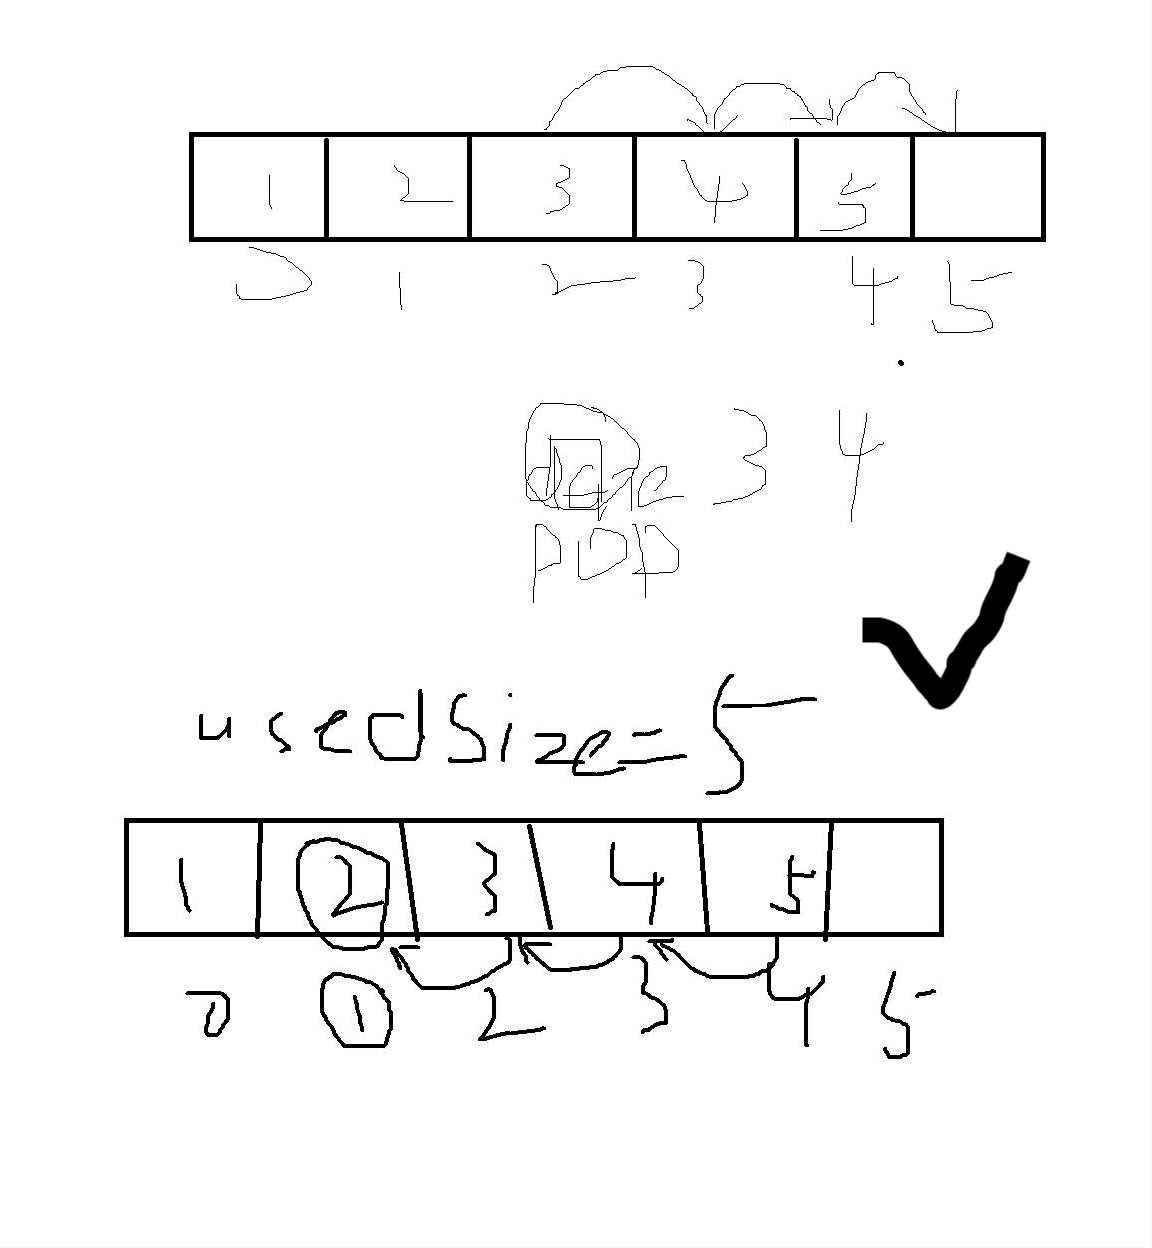 1 2 3 4 5
0 1 2 3 4 5
3 4
pop
usedSize=5
1 2 3 4 5
0 1 2 3 4 5